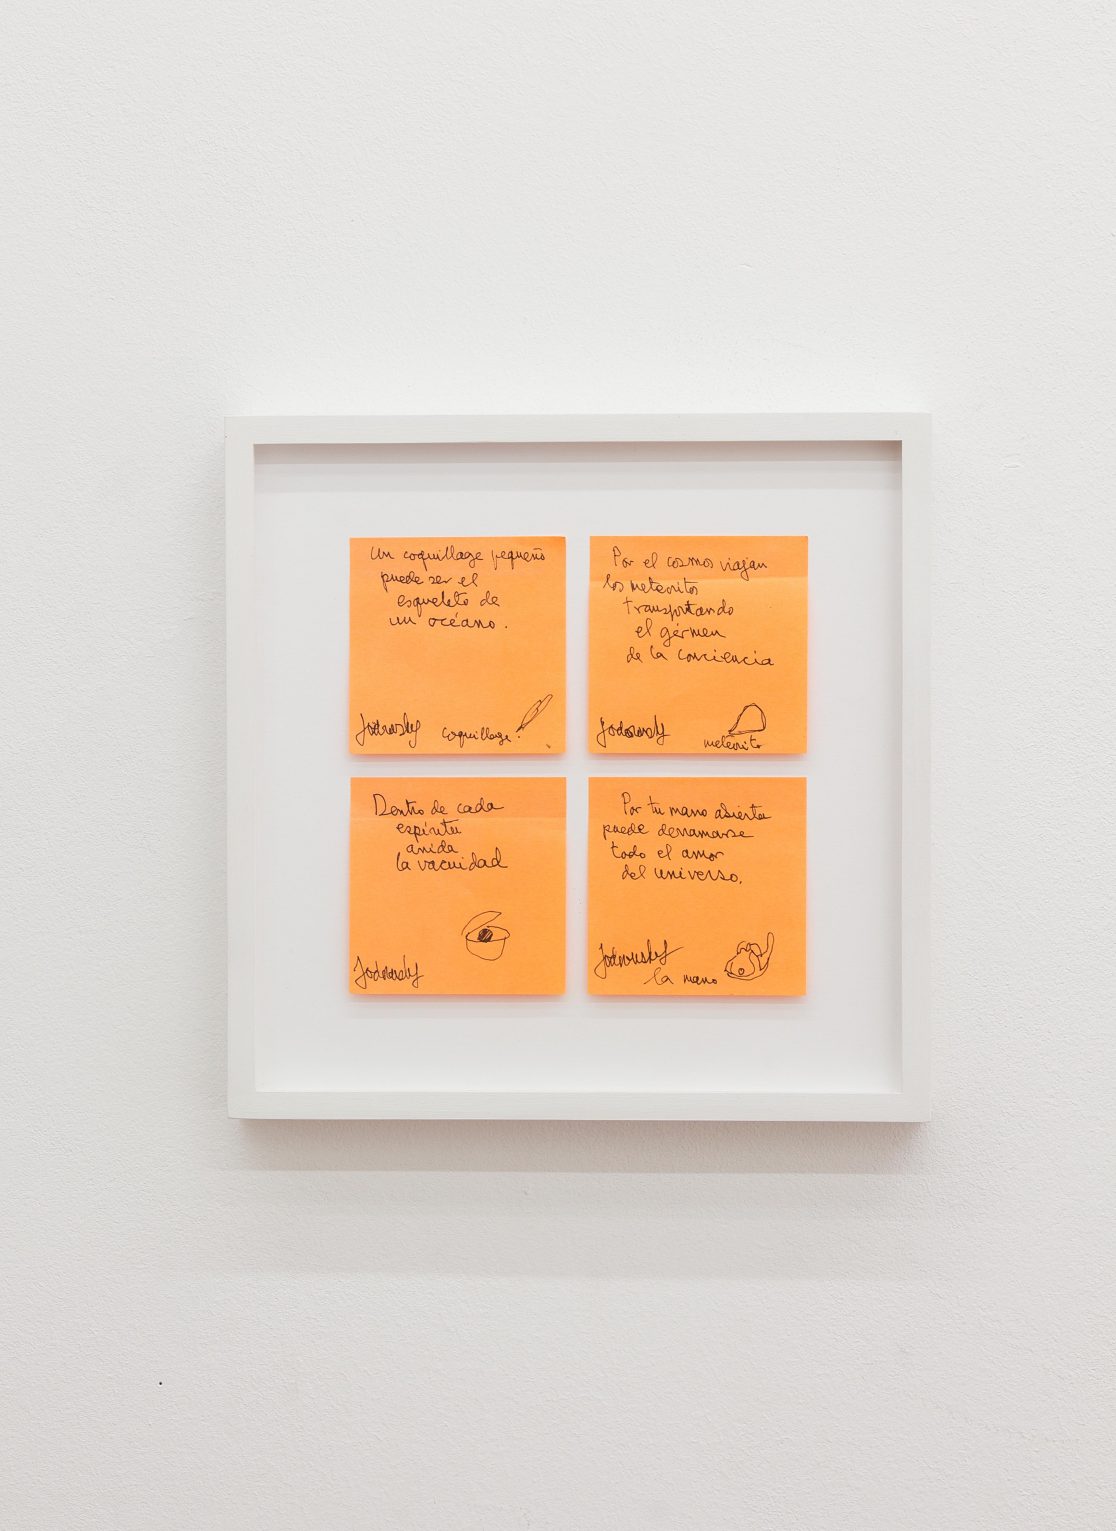 Un coquillage pequeño
puede ser el
esqueleto de
un océano.
Jodorowsky
coquillage.
Por el cosmos viajan
los meteoritos
transportando
el gérmen
de la conciencia
Jodorowsky
meteorito
Dentro de cada
espíritu
anida
la vacuidad
Jodorowsky
Por tu mano abierta
puede derramarse
todo el amor
del universo.
Jodorowsky
la mano